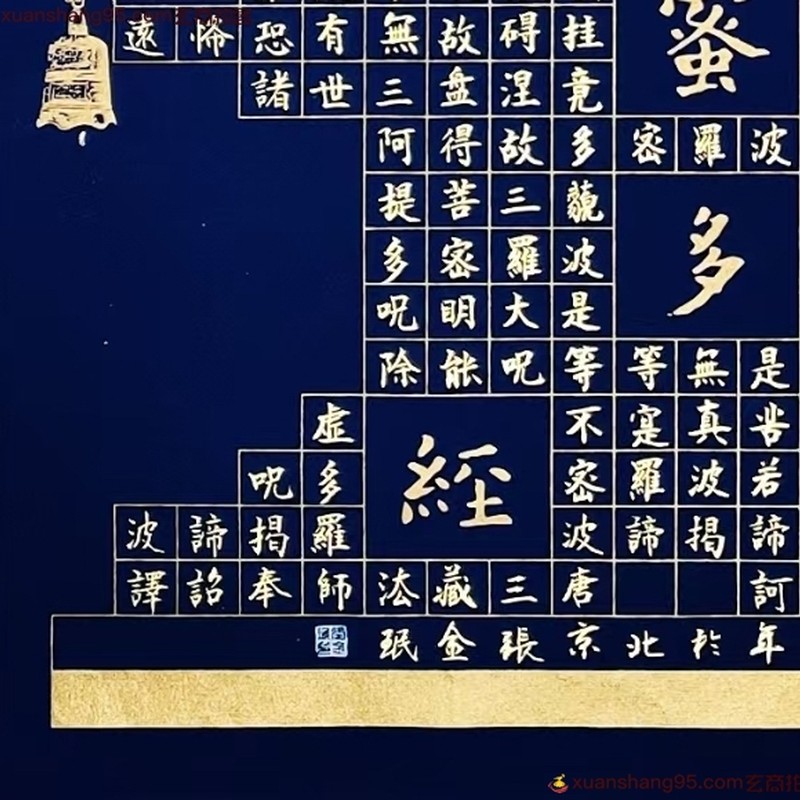 挂碍故無有恐怖遠
蜜
竟涅盘三世諸
波羅密多故得阿
藐三菩提
多
波羅密多
是大明呪
是無等等呪能除
苦真寔不虛
經
若波羅密多呪
諦揭諦波羅揭諦波
訶唐三藏法師奉詔譯
年於北京張金珉
xuanshang95.com